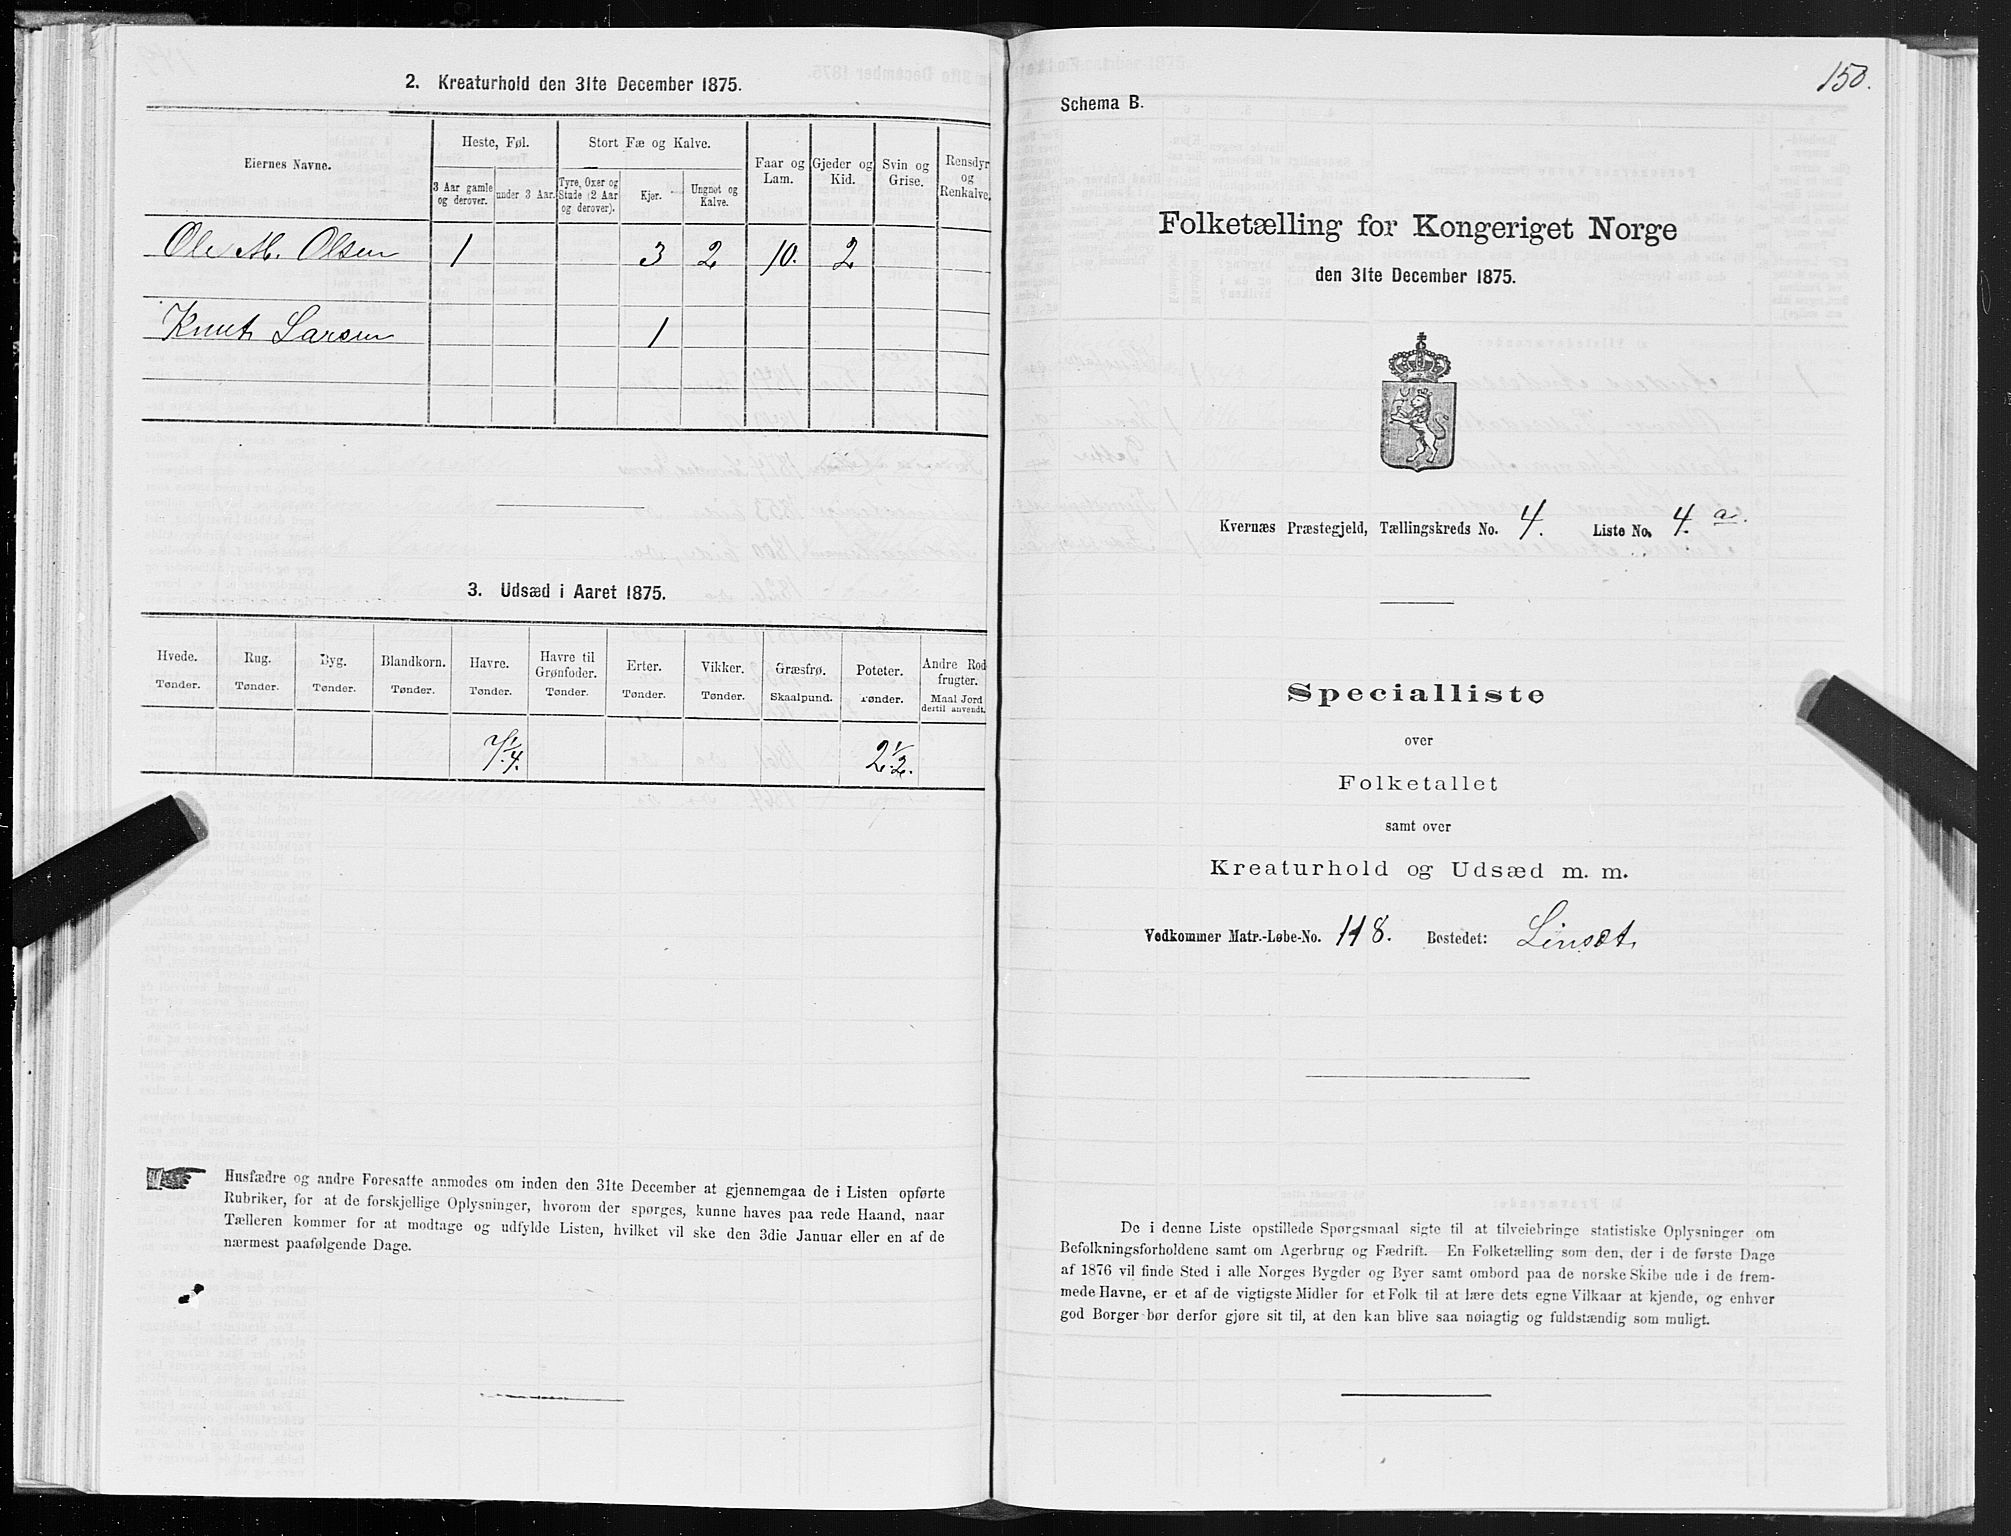 2. Kreaturhold den 31te December 1875.
Eiernes Navne.
Heste, Føl.
Stort Fæ og Kalve.
Faar og Lam.
Gjeder og Kid.
Svin og Grise.
Rensdyr og Renkalve.
3 Aar gamle og derover.
under 3 Aar.
Tyre, Oxer og Stude (2 Aar og derover).
Kjør.
Ungnøt og Kalve.
Ole M. Olsen 1 3 2 10. 2
Knut Larsen 1
3. Udsæd i Aaret 1875.
Hvede. Rug. Byg. Blandkorn. Havre. Havre til Grønfoder. Erter. Vikker. Græsfrø. Poteter. Andre Rodfrugter.
Tønder. Tønder. Tønder. Tønder. Tønder. Tønder. Tønder. Tønder. Skaalpund. Tønder. Maal Jord dertil anvendt.
7 1/4. 2 1/2.
Husfædre og andre Foresatte anmodes om inden den 31te December at gjennemgaa de i Listen opførte
Rubriker, for at de forskjellige Oplysninger, hvorom der spørges, kunne haves paa rede Haand, naar
Tælleren kommer for at modtage og udfylde Listen, hvilket vil ske den 3die Januar eller en af de
nærmest paafølgende Dage.
150.
Schema B.
Folketælling for Kongeriget Norge
den 31te December 1875.
Kvernæs Præstegjeld, Tællingskreds No. 4. Liste No. 4. a.
Specialliste
over
Folketallet
samt over
Kreaturhold og Udsæd m. m.
Vedkommer Matr.-Løbe-No. 118. Bostedet: Linsæt.
De i denne Liste opstillede Spørgsmaal sigte til at tilveiebringe statistiske Oplysninger om
Befolkningsforholdene samt om Agerbrug og Fædrift. En Folketælling som den, der i de første Dage
af 1876 vil finde Sted i alle Norges Bygder og Byer samt ombord paa de norske Skibe ude i de frem-
mede Havne, er et af de vigtigste Midler for et Folk til at lære dets egne Vilkaar at kjende, og enhver
god Borger bør derfor gjøre sit til, at den kan blive saa nøiagtig og fuldstændig som muligt.